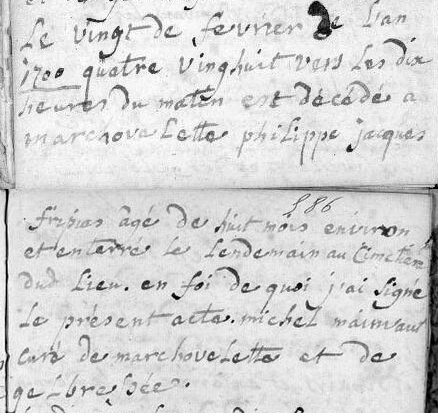 Le vingt de fevrier de L'an
1700 quatre vinghuit vers les dix
heures du matin est décédé a
marchovelette philippe jacques
586
fripias âgé de huit mois environ
et enterré le Lendemain au Cimetiere
dud Lieu. en foi de quoi j'ai signé
Le présent acte. michel
curé de marchovelette et de
gelbressée.